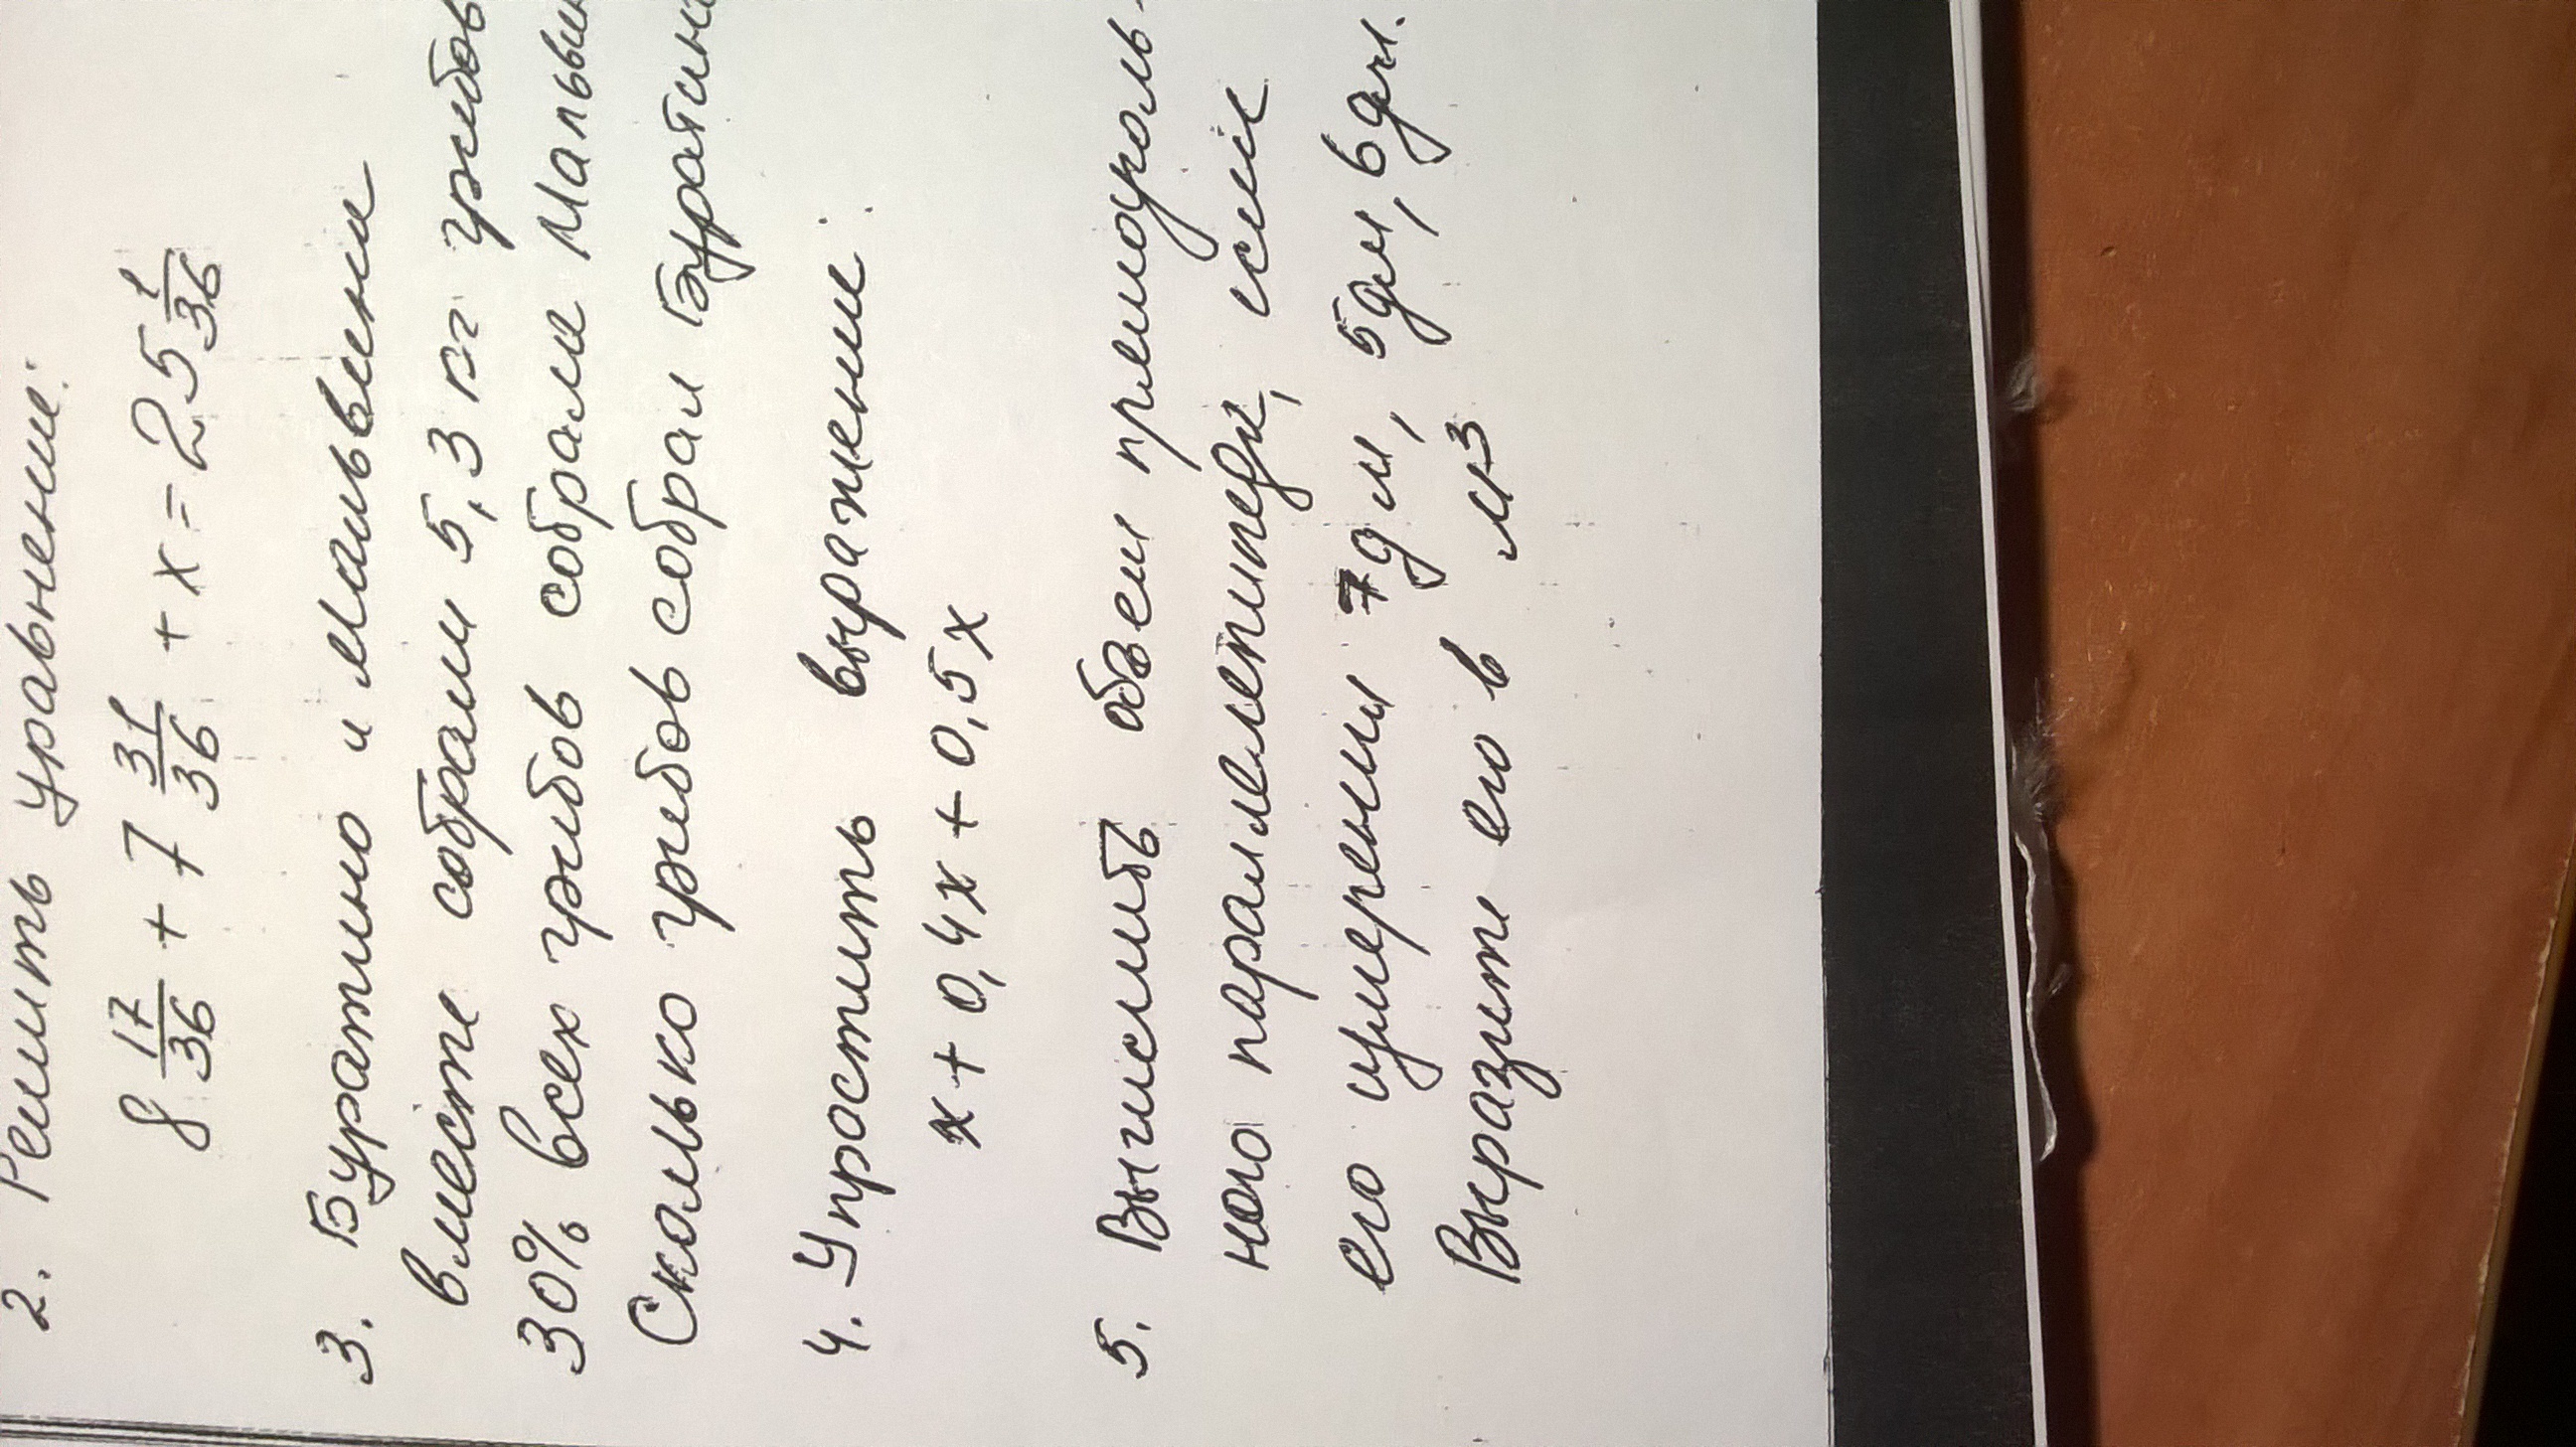 2. Решить уравнение:
8 17/36 + 7 31/36 + x = 25 1/36
3. Буратино и Мальвина
вместе собрали 5,3 кг грибов
30% всех грибов собрала
Сколько грибов собрал
4. Упростить выражение:
x + 0,4x + 0,5x
5. Вычислить объем прямоуголь-
ного параллелепипеда, если
его измерения 7дм, 5дм, 6дм.
Выразите его в м³